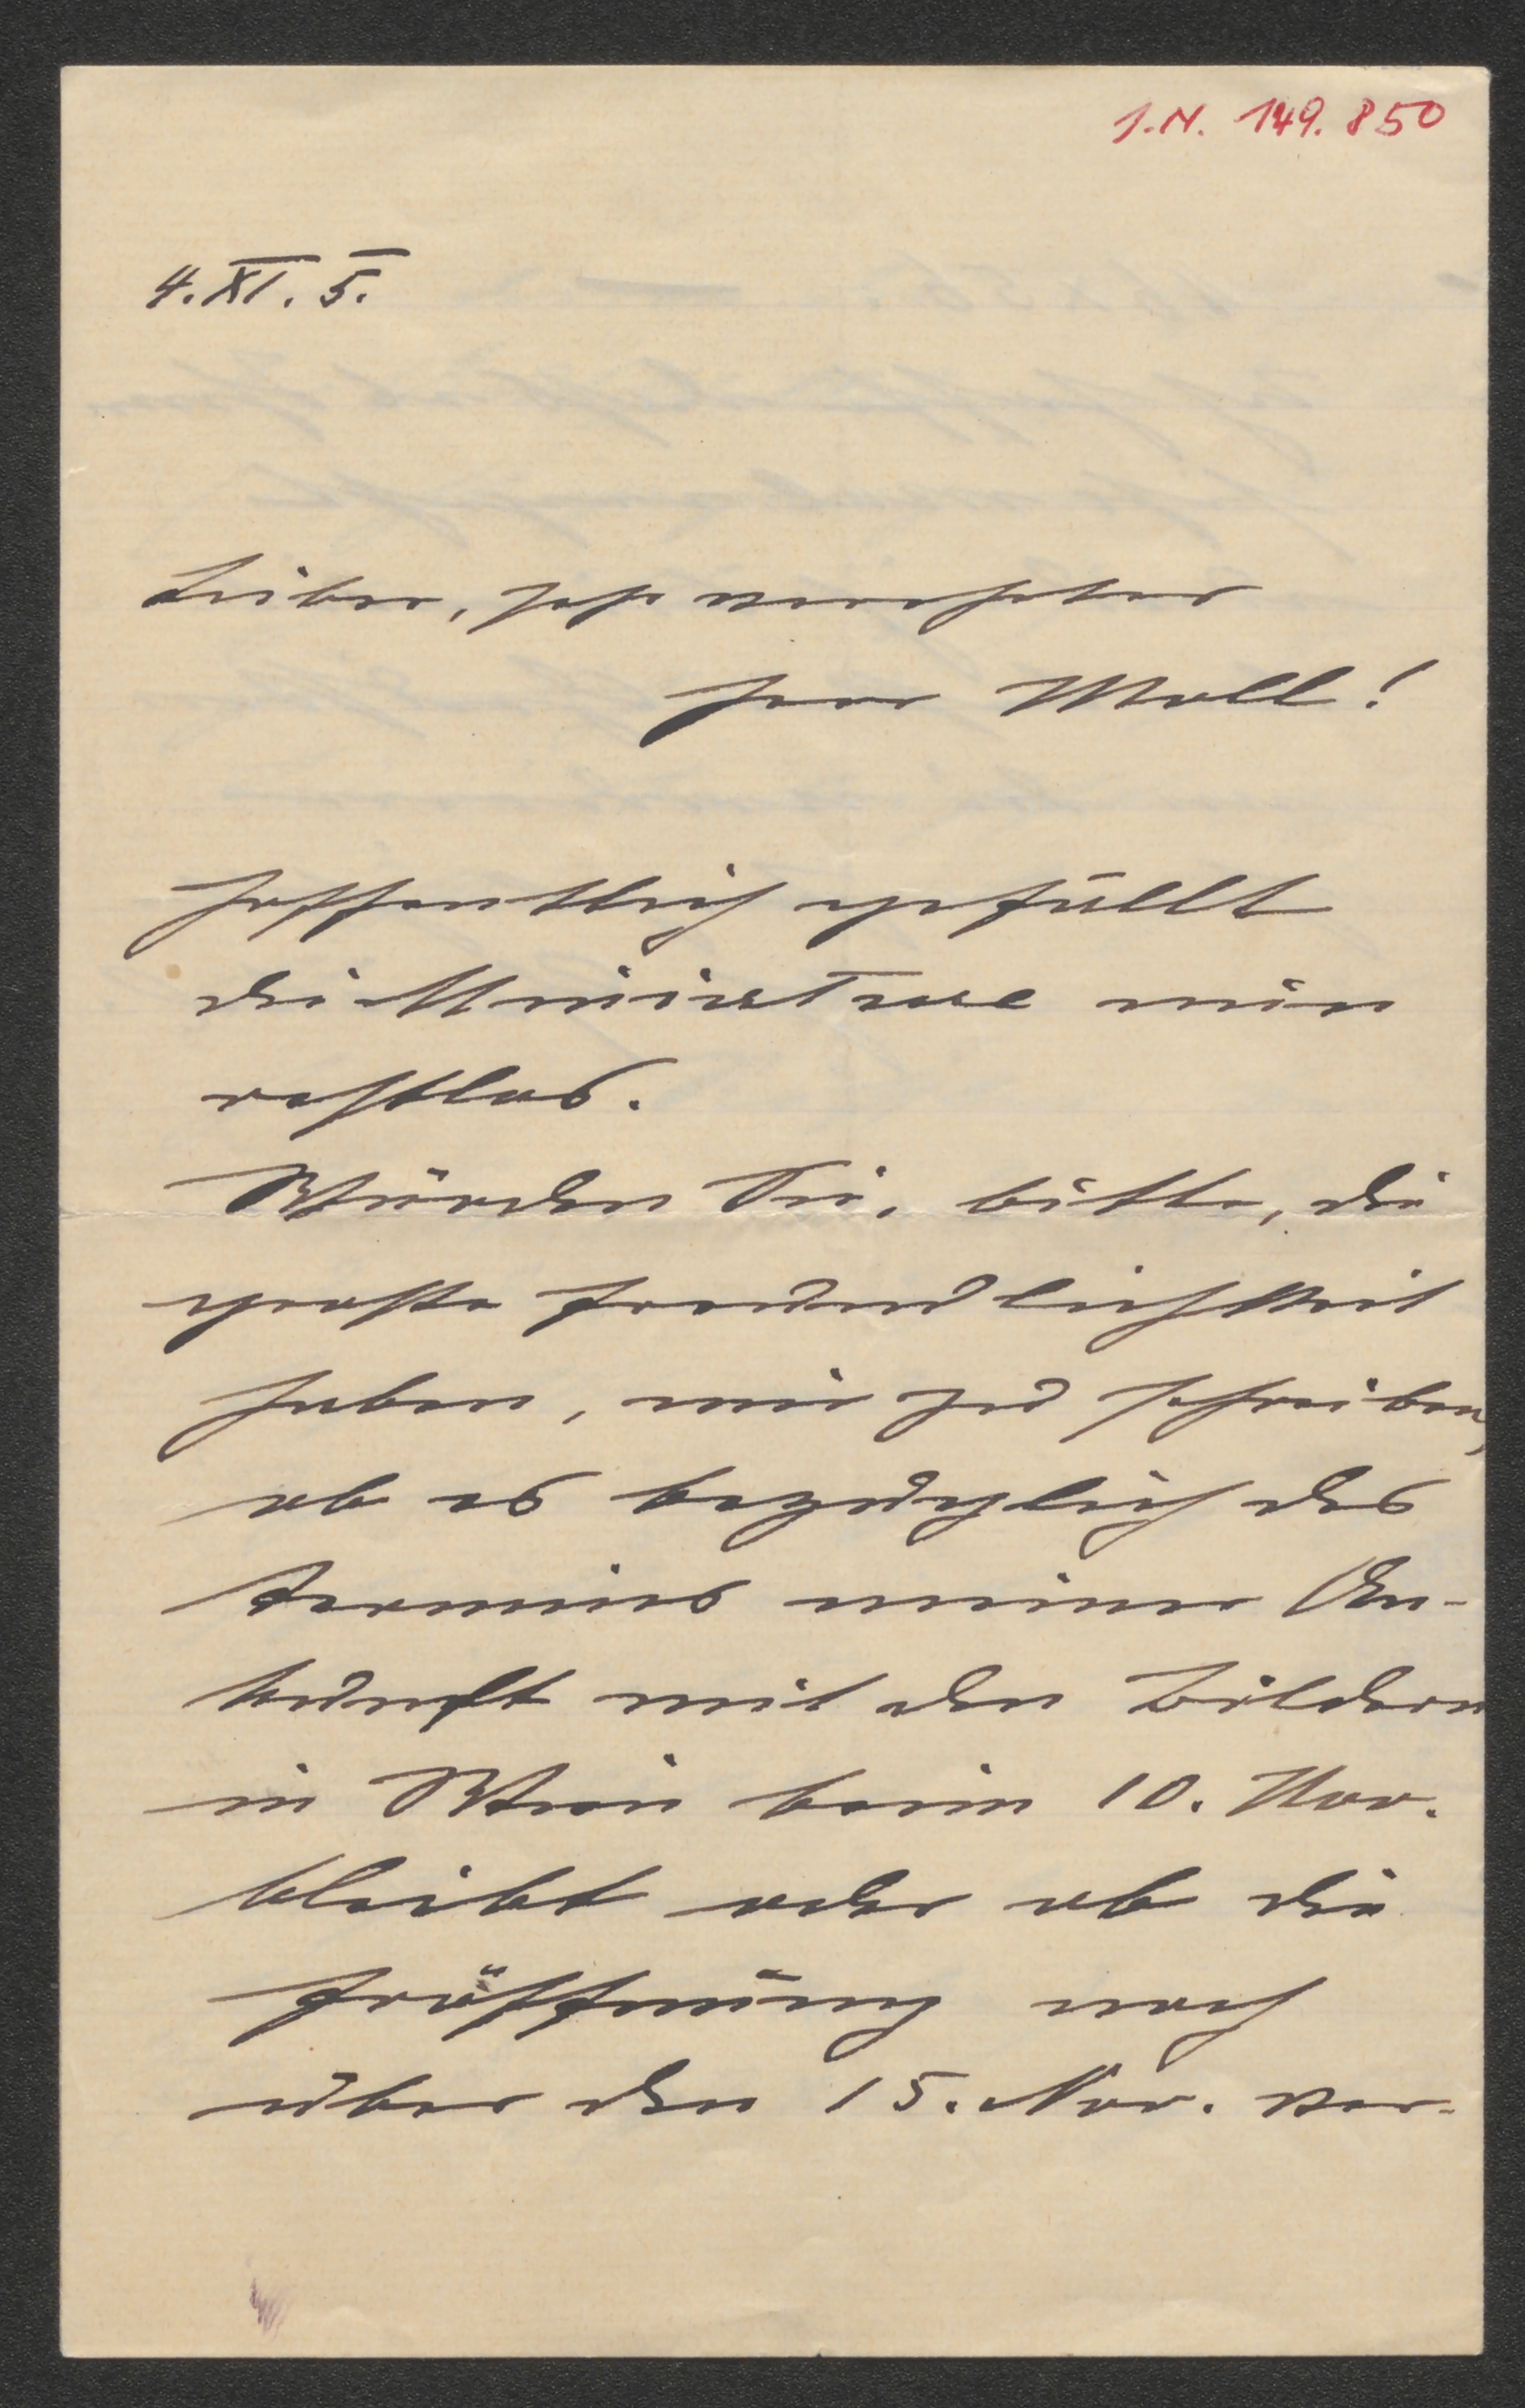 I.N. 149.850
4.XI.5.
Lieber, sehr verehrter
Herr Moll!
Hoffentlich gefällt
die
restlos.
Würden Sie, bitte, die
grosse Freundlichkeit
haben, mir zu schreiben,
ob es bezüglich des
Termins meiner An-
kunft mit den Bildern
in Wien beim 10. Nov.
bleibt oder ob die
Eröffnung noch
über den 15. Nov. ver-